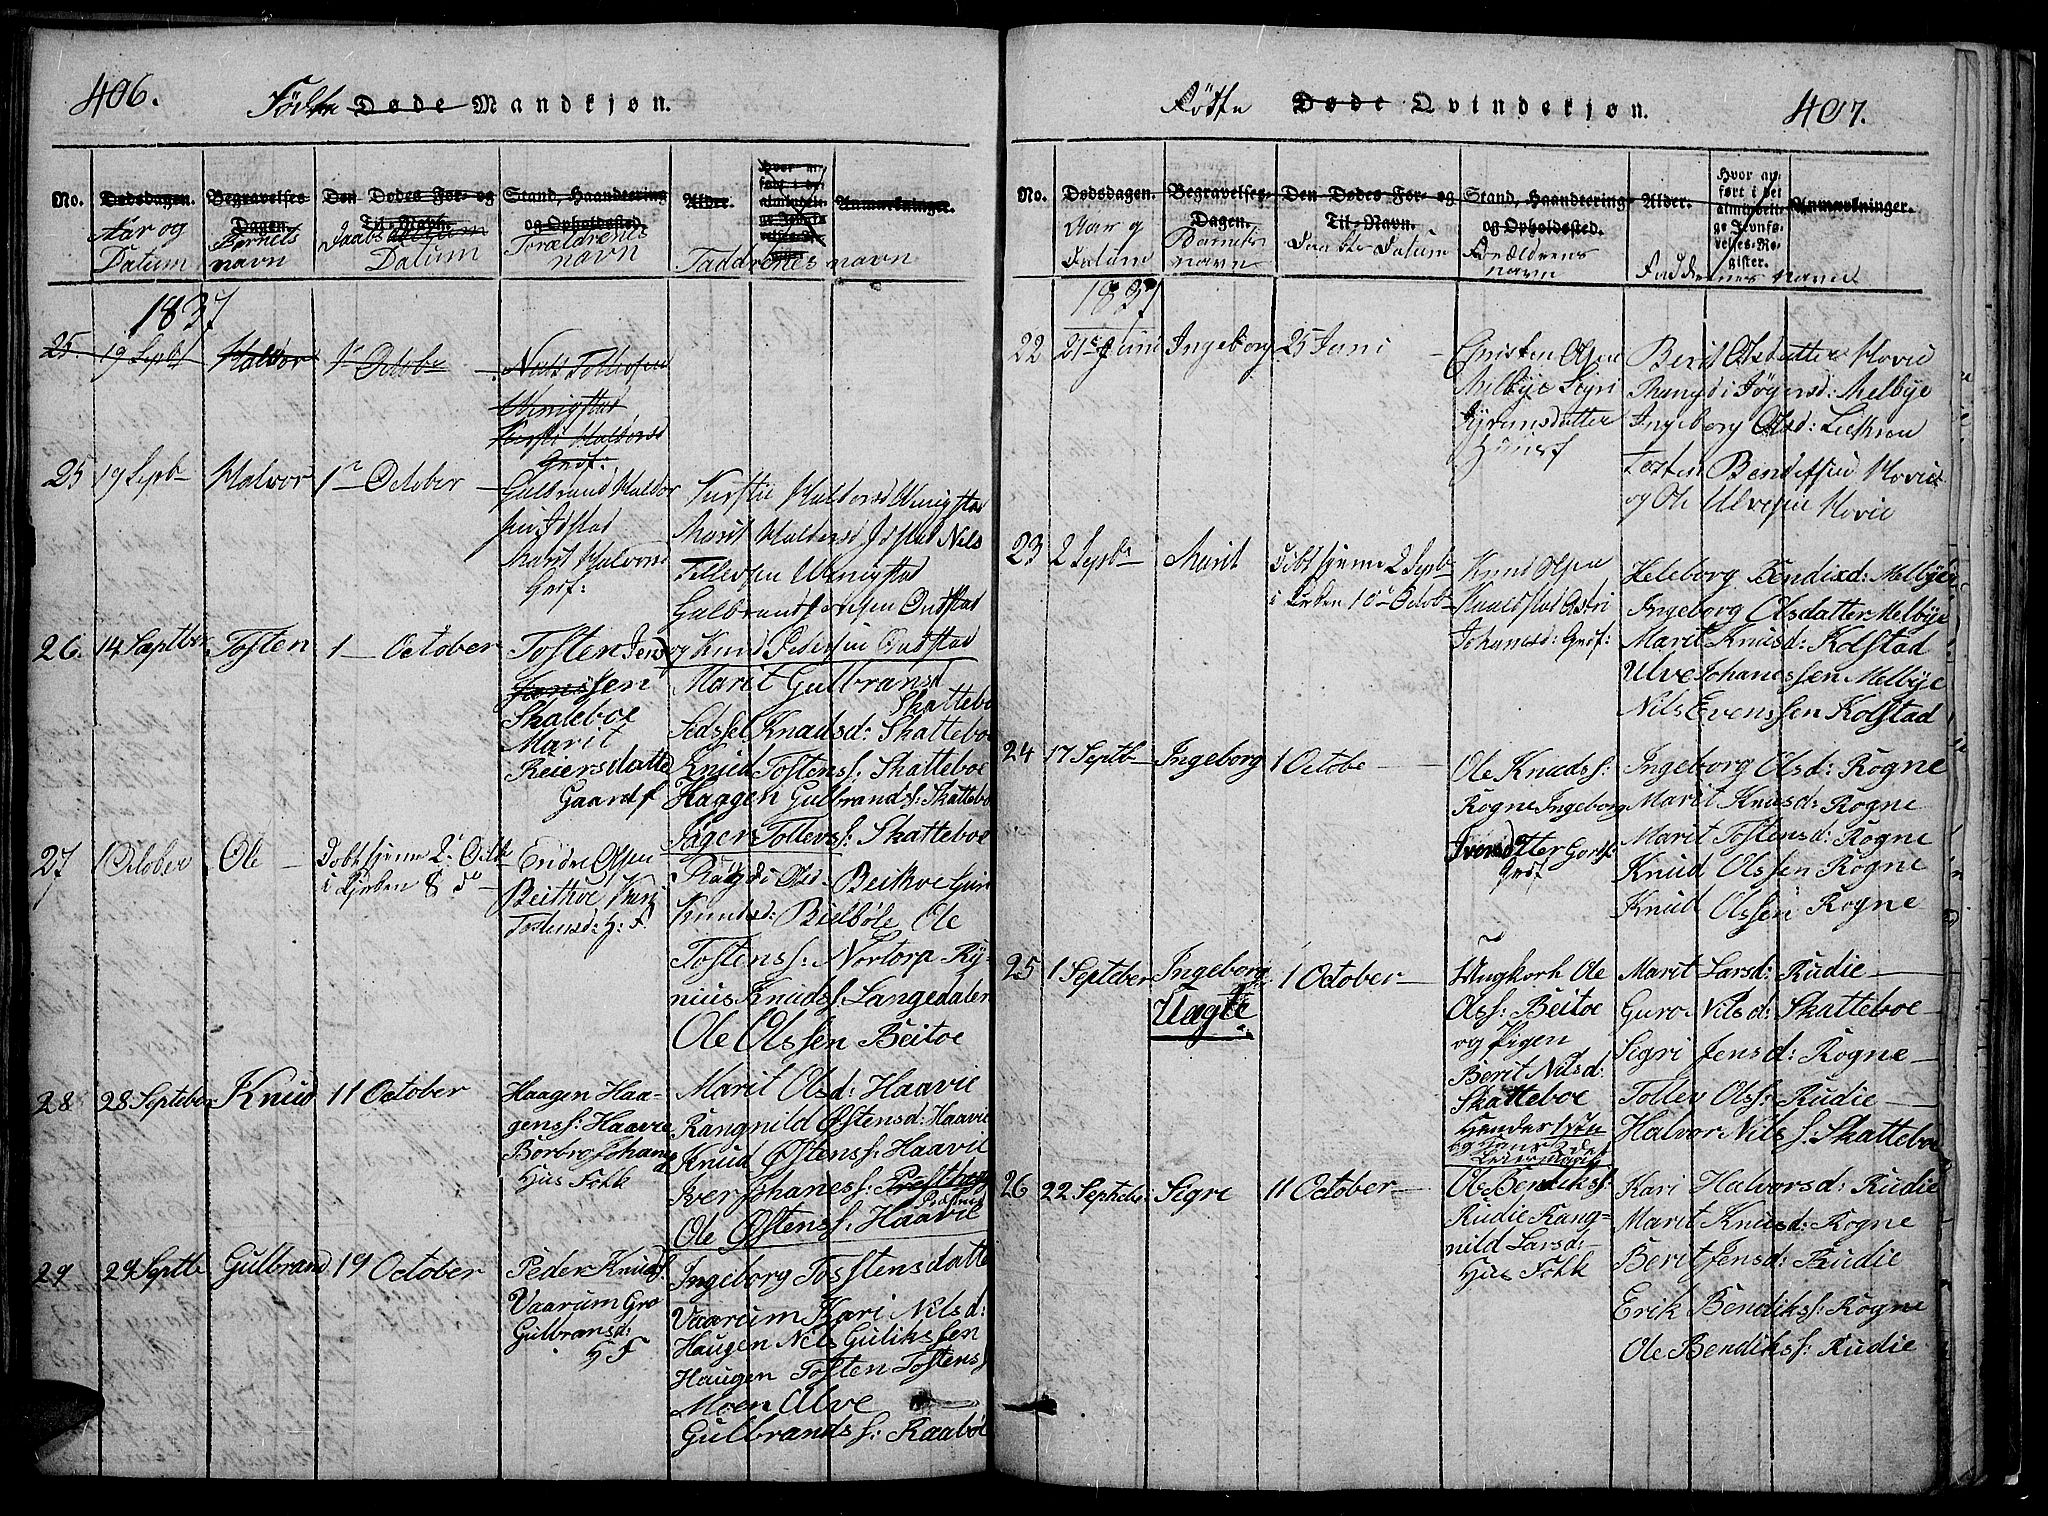 406.
Födte Døde Mandkjøn.
No.
Dødsdagen.
Aar og
Datum
Begravelses-
Dagen.
Barnets
navn
Den Dødes For- og
Til-Navn.
Daabs
Datum
Stand, Haandtering
og Opholdssted.
Forældrenes
navn
Alder.
Anmærkninger.
Faddrenes navn
1837
25
19 Septb
Haldor
1 October
Kirsti Haldorsd
25
19 Septb
Halvor
1 October
Gulbrand Haldor
Marit Halvorsd
Grdf:
Kirstie Haldorsd
Marit Haldorsd
Nils
Tollefsen
og Knud Pedersen
26.
14 Septbr
Tosten
1 October
Tosten Jens
Jonssen
Skateboe
Marit
Reiersdatte
Gaardf
Marit Gulbransd
Skattebo
Sidsel Knudsd: Skatteboe
Knud Tostenss: Skatteboe
Haagen Gulbrands: Skattebo
Jøgers Tollevs: Skatteboe
27
1 October
Ole
Døbt hjemme 2 Octb
i Kirken 8 do
Endre Olsen
Beithoe
Tostensd: H: F.
Ragdi Olsd Beithoe
Knudsd: Bielbøle Ole
Tostens: Nortorp Ry-
nius Knuds: Langedalen
Ole Olssen Beitoe
28
28 Septeber
Knud
11 October
Haagen Haa-
gens: Haavie
Borbro Johans
d
Hus Folk
Marit Olsd: Haavie
Rangnild Østensd: Haavie
Knud Østens: Haavie
Iver Johanes:
Ole Østens: Haavie
29
29 Septbr
Gulbrand
19 October
Peder Knuds
Vaarum Gro
Gulbransd:
H F
Ingeborg Tosstensdatte
Vaarum Kari Nilsd:
Haugen Nils Gulikssen
Haugen Tosten Tostens
Moen Ulve
Gulbrands: Raabøe
407.
Födte Døde Qvindekjøn.
No.
Dødsdagen.
Aar og
Datum
Begravelses-
Dagen.
Barnets
navn
Den Dødes For- og
Til-Navn.
Daabs Datum
Stand, Haandtering
og Opholdssted.
Forældrenes
navn
Alder.
Hvor an-
ført i det
almindeli-
ge Jevnfø-
relses-Re-
gister.
Anmærkninger.
Faddrenes navne
1837
22
21 Juni
Ingeborg
25 Juni
Christen Olsen
Melbye Sigri
Huusf
Berit Olsdatter Hovie
Rangdi Jøgersd: Melbye
Ingeborg Olsd:
Tosten Bendixsen Hovie
og Ole Ulvesen Hovie
23
2 Septb
Marit
Døbt hjemme 2 Septb
i Kirken 1 October
Knud Olsen
Johanesd: Grdf:
Heleborg Bendixd: Melbye
Ingeborg Olsdatter Melbye
Marit Knusd: Kolstad
Ulve Johanessen Melbye
Nils Evenssen Kolstad
24
17 Septb
Ingeborg
1 Octobe
Ole Knuds:
Rogne Ingeborg
Iversdatter
Grdf
Ingeborg Olsd: Rogne
Marit Knusd: Rogne
Marit Tostensd: Rogne
Knud Olssen Rogne
Knud Olssen Rogne
25
1 Septeber
Ingeborg
Uægte
1 October
Ungkorh Ole
Ols: Beitoe
og Pigen
Berit Nilsd:
Skatteboe
Marit Larsd: Rudie
Guro Nilsd: Skatteboe
Sigri Jensd: Rogne
Tollev Ols: Rudie
Halvor Nils: Skatteboe
26
22 Septeber
Sigre
11 October
Ole Bendiks:
Rudie Rang-
nild Larsd:
Hus Folk
Kari Halvorsd: Rudie
Marit Knusd: Rogne
Berit Jensd: Rudie
Erik Bendiks: Rogne
Ole Bendiks: Rudie